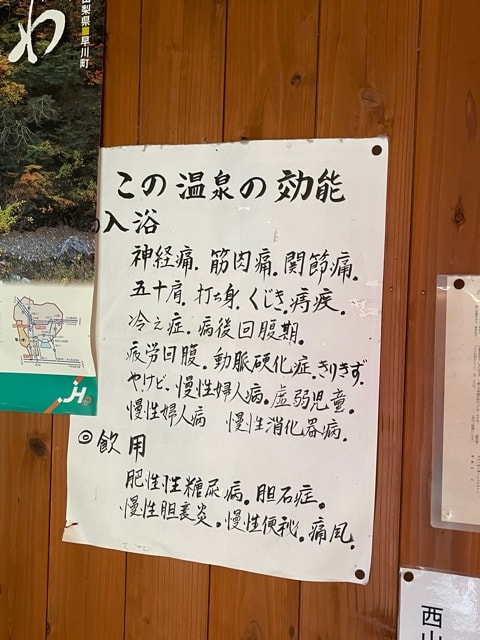 わ
山梨県■早川町
この温泉の効能
入浴
神経痛.筋肉痛.関節痛.
五十肩.打ち身.くじき.痔疾.
冷え症.病後回腹期.
疲労回腹.動脈硬化症.きりきず.
やけど.慢性婦人病.虚弱児童.
慢性婦人病 慢性消化器病.
◎飲用
肥性性糖尿病.胆石症.
慢性胆嚢炎.慢性便秘.痛風.
西山